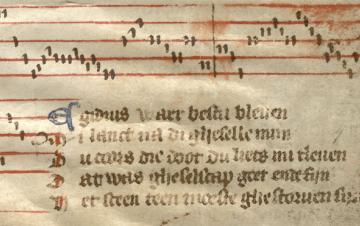 Egidius waer bestu bleven
Mi lanct na di gheselle mijn
Du coors die doot du liets mi tleven
Dat was gheselscap goet ende fijn
Het sceen teen moeste ghestorven sijn